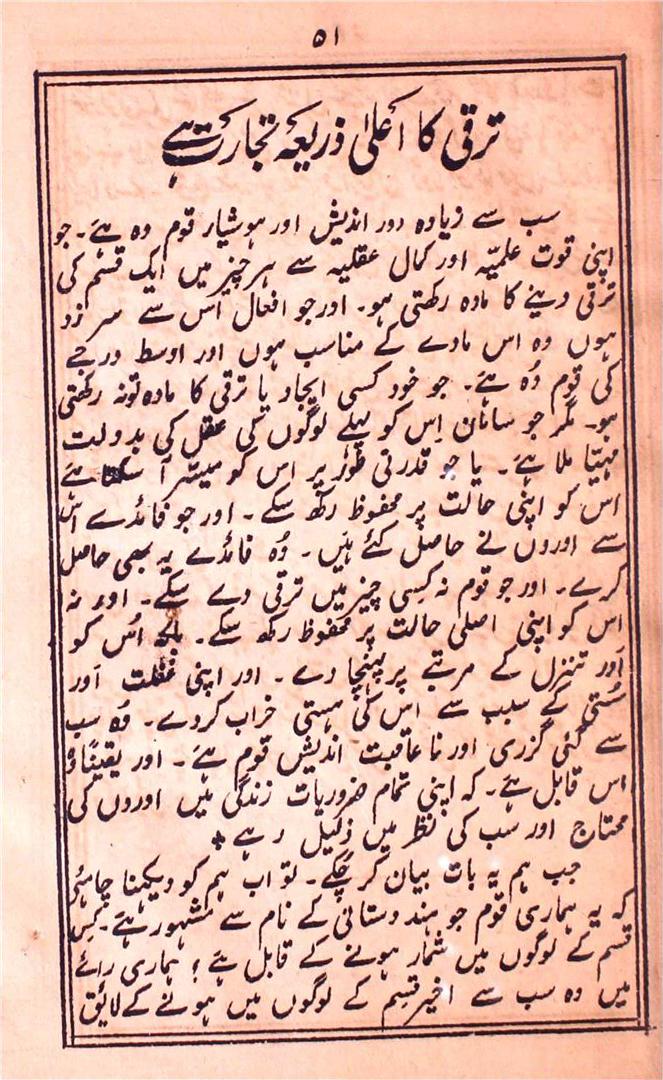 ۵۱
ترقی کا اعلیٰ ذریعہ تجارت ہے
سب سے زیادہ دور اندیش اور ہوشیار قوم وہ ہے۔ جو
اپنی قوت علمیّہ اور کمال عقلیہ سے ہر چیز میں ایک قسم کی
ترقی دینے کا مادہ رکھتی ہو۔ اور جو افعال اُس سے سرزد
ہوں وہ اس مادے کے مناسب ہوں اور اوسط درجے
کی قوم وُہ ہے۔ جو خود کسی ایجاد یا ترقی کا مادہ تو نہ رکھتی
ہو۔ مگر جو سامان اِس کو پہلے لوگوں کی عقل کی بدولت
مہیّا ملا ہے۔ یا جو قدرتی طَور پر اس کو میسّر آ سکتا ہے
اس کو اپنی حالت پر محفوظ رکھ سکے۔ اور جو فائدے اس
سے اوروں نے حاصل کئے ہَیں۔ وُہ فائدے یہ بھی حاصل
کرے۔ اور جو قوم نہ کسی چیز میں ترقی دے سکے۔ اور نہ
اس کو اپنی اصلی حالت پر محفوظ رکھ سکے۔ بلکہ اُس کو
اَور تنزل کے مرتبے پر پہنچا دے۔ اور اپنی غفلت اَور
سُستی کے سبب سے اس کی ہستی خراب کر دے۔ وُہ سب
سے گئی گزری اور نا عاقبت اندیش قوم ہے۔ اور یقیناً وہ
اس قابل ہے۔ کہ اپنی تمام ضروریات زندگی میں اوروں کی
محتاج اور سب کی نظر میں ذلیل رہے٭
جب ہم یہ بات بیان کر چکے۔ تو اب ہم کو دیکھنا چاہئے
کہ یہ ہماری قوم جو ہندوستانی کے نام سے مشہور ہے۔ کس
قسم کے لوگوں میں شمار ہونے کے قابل ہے؟ ہماری رائے
میں وہ سب سے اخیر قسم کے لوگوں میں ہونے کے لایٔق